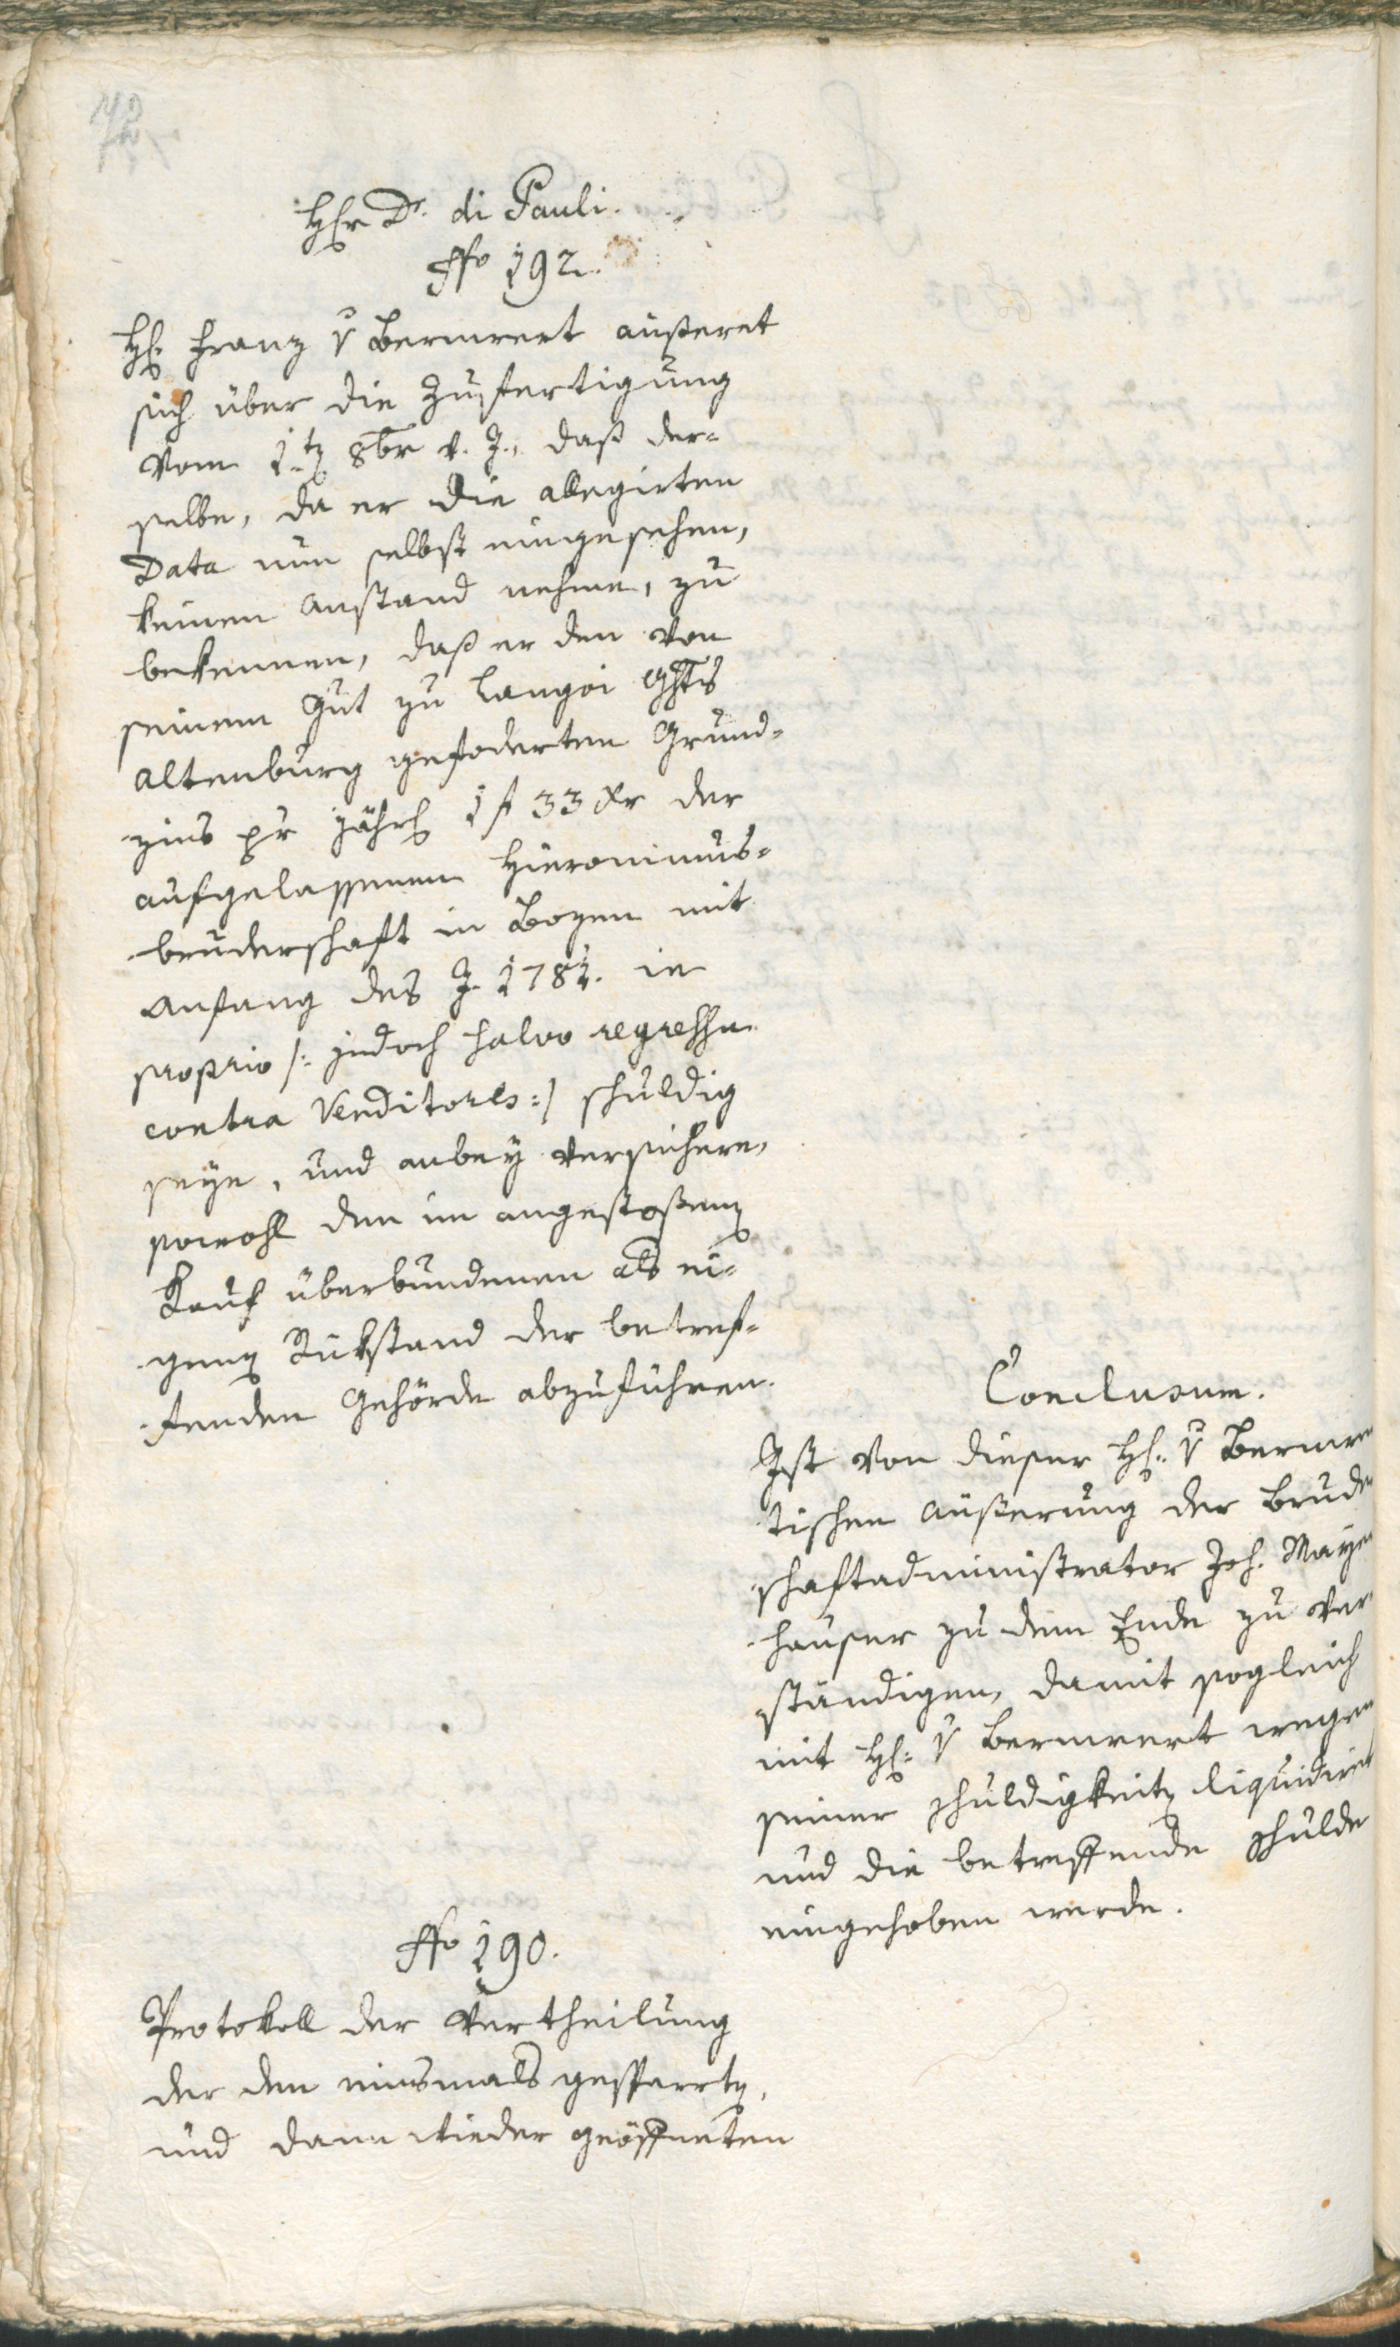 Herr Dr. di Pauli.
Nro 192.
H. Franz v Bernwert äußeret
sich über die Zufertigung
vom 1.t 8br v. J., daß der-
selbe, da er die allegirten
Data nun selbst eingesehen,
keinen Anstand nehme, zu
bekennen, daß er den von
seinem Gut zu Langoi Ghts
Altenburg gefoderten Grund-
zins pr jährl 1 f 33 Xr der
aufgelassenen Hieronimus-
bruderschaft in Bozen mit
Anfang des J. 1781. in
proprio /: jedoch salvo regressu
contra Venditores :/ schuldig
seye, und anbey versichere,
sowohl den im angestoßenen
Kauf überbundenen als ei-
genen Rükstand der betref-
fenden Gehörde abzuführen.
Conclusum.
Ist von dieser H. v Bernwer
tischen Äußerung der Bruder
schaftadministrator Joh. Mayr
hauser zu dem Ende zu ver
ständigen, damit sogleich
mit H. v Bernwert wegen
seiner Schuldigkeiten liquidirt
und die betreffende Schulde
eingehoben werde.
Nro 190.
Protokoll der Vertheilung
der den einsmals gesparrten,
und dann wieder geöffneten